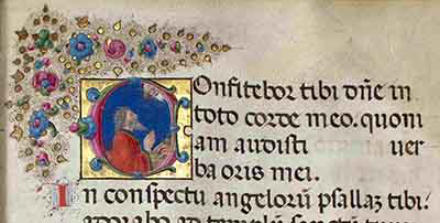 Confitebor tibi dñe in
toto corde meo. quoni
am audisti uer
ba oris mei.
In conspectu angelorũ psallaȝ tibi.
adorabo ad templũ